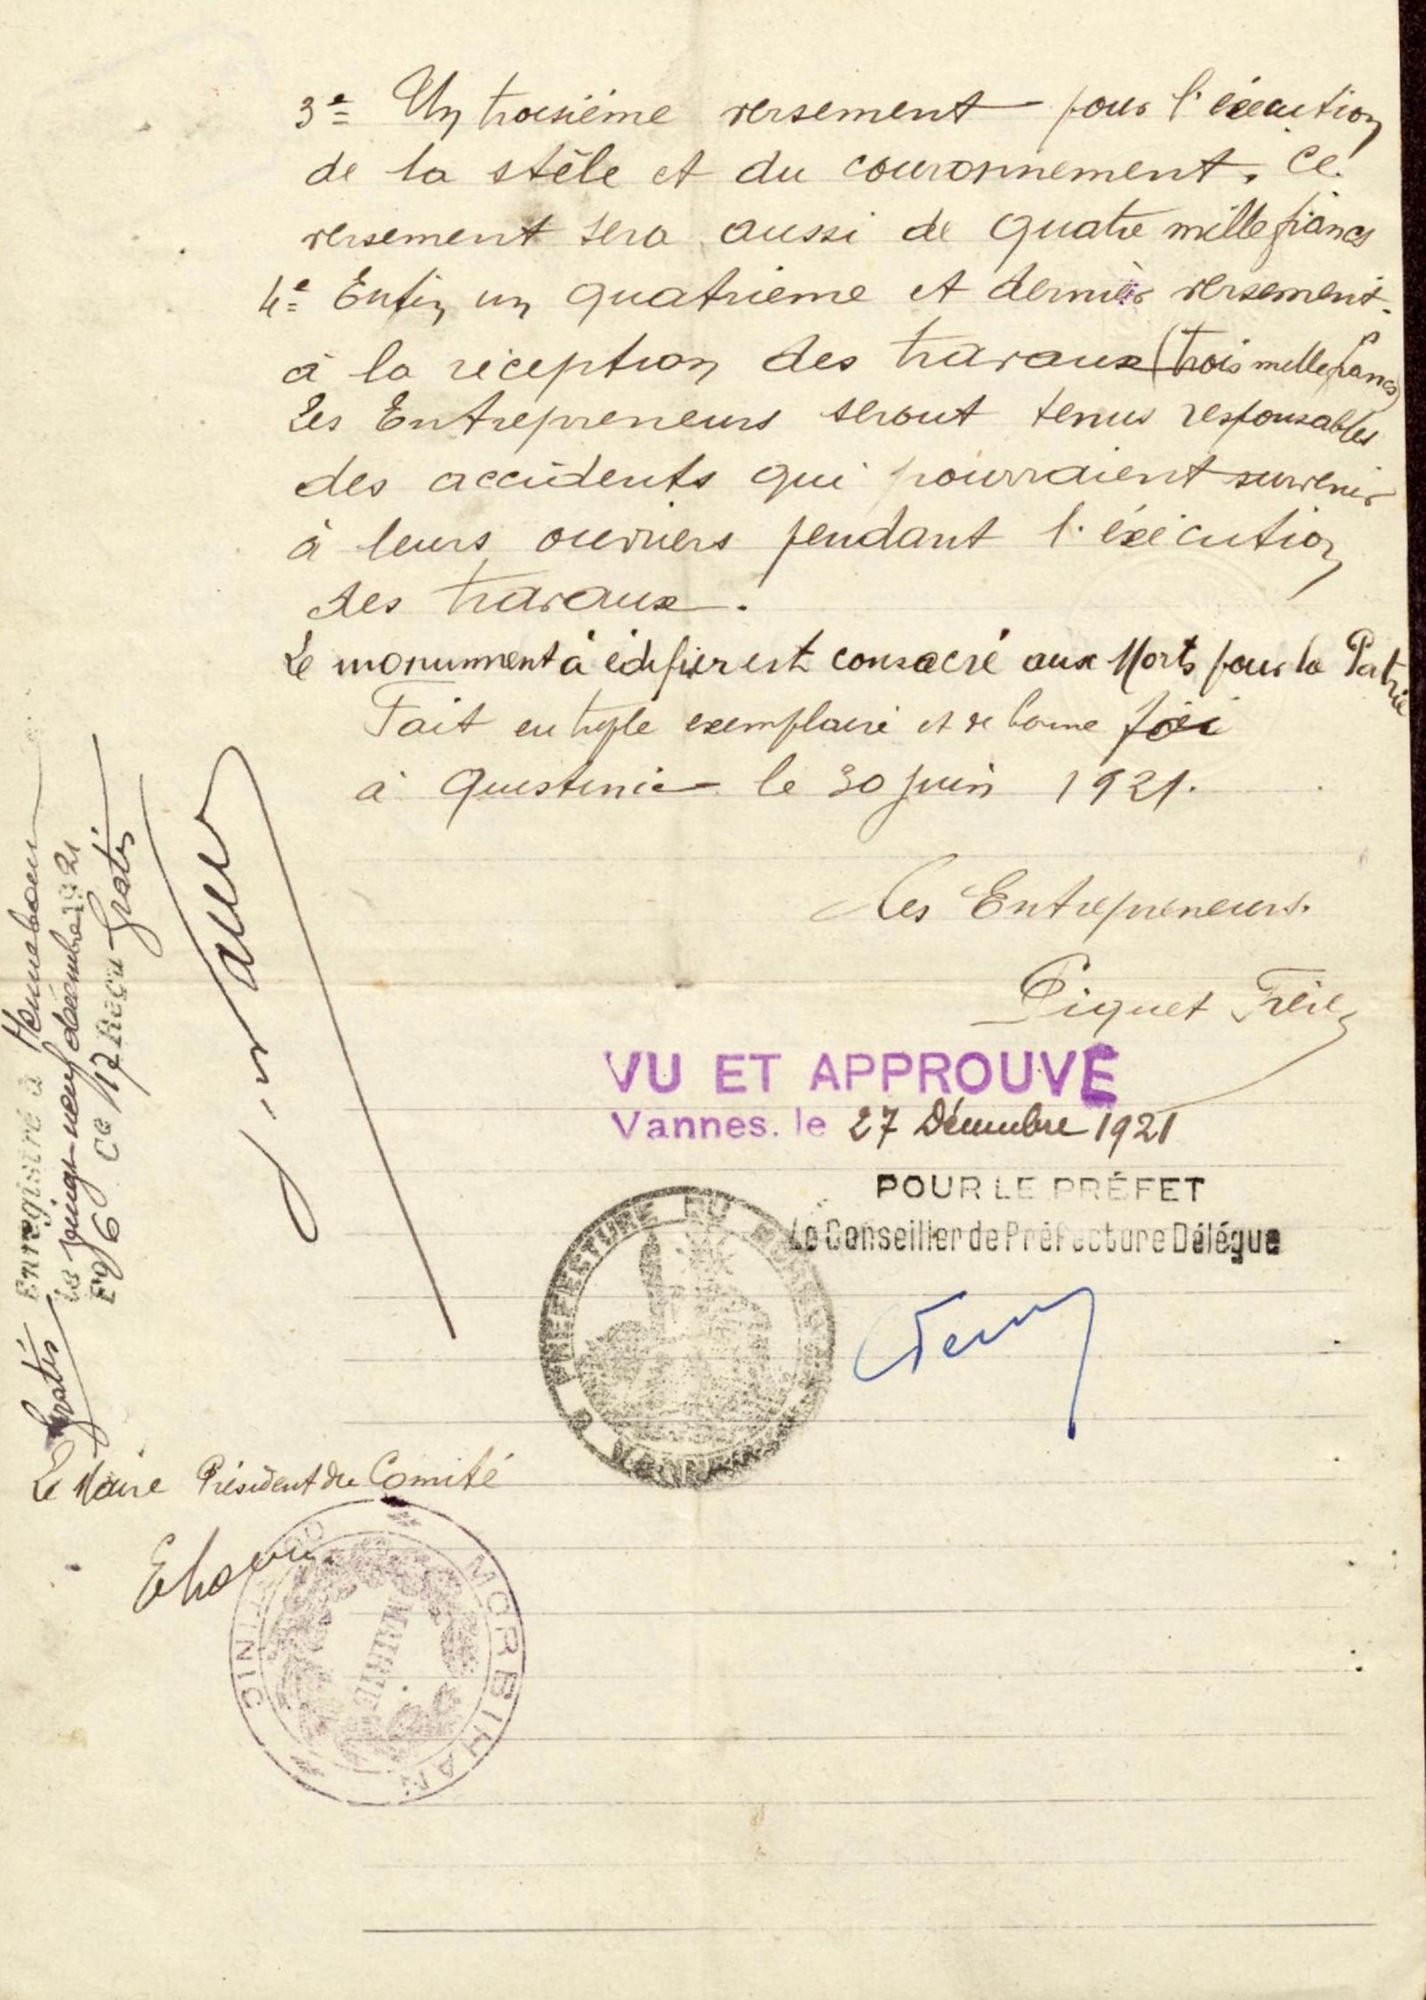 3e Un troisième versement pour l'éxécution
de la stèle et du couronnement. Ce
versement sera aussi de quatre mille francs
4e Enfin un quatrième et dernièr versement
à la réception des travaux (trois mille francs)
Les Entrepreneurs seront tenus responsables
des accidents qui pourraient survenir
à leurs ouvriers pendant l'éxécution
des travaux.
Le monument à édifier est consacré aux Morts pour la Patrie
Fait en triple exemplaire et de bonne foi
à Quistinic le 30 juin 1921.
Les Entrepreneurs.
Piquet Frères
VU ET APPROUVÉ
Vannes. le 27 Décembre 1921
POUR LE PRÉFET
Le Conseiller de Préfecture Délégué
PREFECTURE DU MORBIHAN
Enregistré à Hennebont
le vingt-neuf décembre 1921
F° 96 Ce 17 Reçu Gratis
Gratis
Le Maire Président du Comité
MORBIHAN
MAIRIE